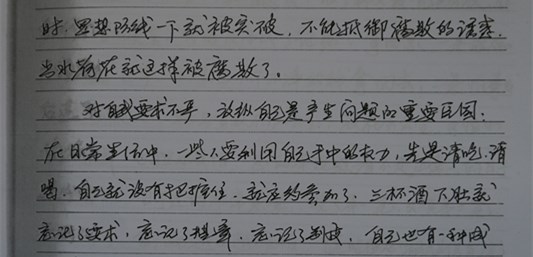 时，思想防线一下就被突破，不能抵御腐败的诱惑，
当水存在就这样被腐败了。
对自我要求不严，放纵自己是产生问题的重要原因。
在日常生活中，一些人要利用自己手中的权力，先是请吃、请
喝，自己就没有把握住，就应约参加了，三杯酒下肚就
忘记了要求，忘记了规章，忘记了制度，自己也有一种成